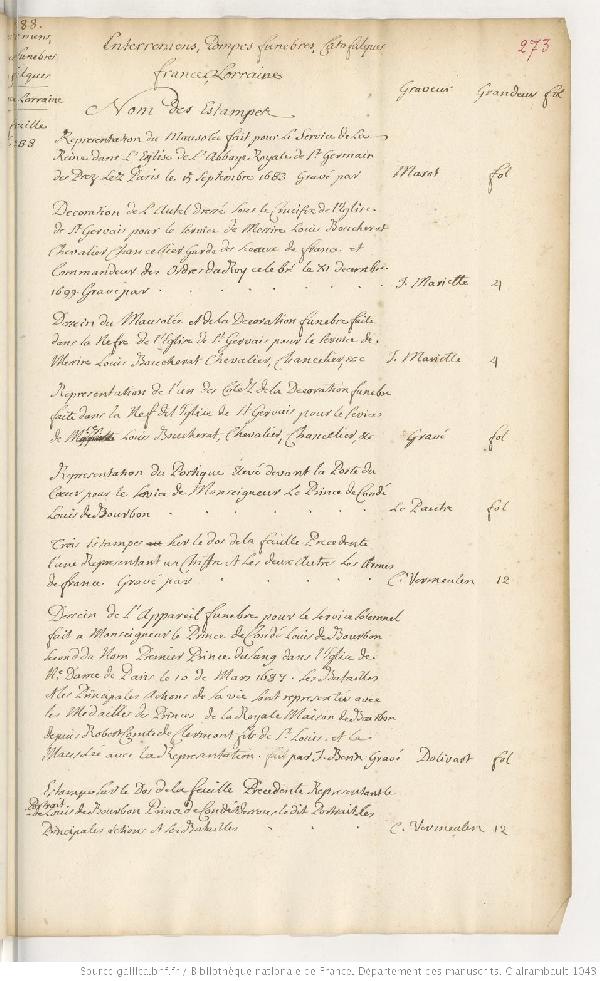 88.
Enterremens, Pompes funebres, Catafalques
273
funebres
france, Lorraine
Lorraine
Graveur Grandeur fol
Nom des Estampes
Representation du Mausolée fait pour le Service de La
Reine dans L'Eglise de L'Abbaye Royale de St Germain
des Prez Lez Paris le 15 Septembre 1683 Gravé par Marot fol
Decoration de L'Autel dressé sous le Crucifix de l'Eglise
de St Gervais pour le service de Messire Louis Boucherat
Chevalier Chancellier Garde des Sceaux de france et
Commandeur des Ordres du Roy celebré le XI decembre
1699 Gravé par J. Mariette 4
Dessein du Mausolée et de la Decoration funebre faite
dans la Nefve de l'Eglise de St Gervais pour le Service de
Messire Louis Boucherat Chevalier, Chancelier, &c J. Mariette 4
Representation de l'un des Côtez de la Decoration funebre
faite dans la Nef de l'Eglise de St Gervais pour le Service
de Louis Boucherat, Chevalier, Chancellier, &c Gravé fol
Representation du Portique élevé devant la Porte du
Cœur pour le service de Monseigneur Le Prince de Condé
Louis de Bourbon Le Pautre fol
Trois Estampes sur le dos de la feuille Precedente
l'une Representant un Chiffre et les deux Autres les Armes
de france Gravé par C. Vermeulen 12
Dessein de l'Appareil funebre pour le service solemnel
fait a Monseigneur le Prince de Condé Louis de Bourbon
second du Nom Premier Prince du sang dans l'Eglise de
Ne Dame de Paris le 10 de Mars 1687. les Batailles
et les Principales Actions de sa vie sont representées avec
les Medailles des Princes de la Royale Maison de Bourbon
depuis Robert Comte de Clermont fils de St Louis, et le
Mausolée avec la Representation. fait par J. Berin Gravé Dolivart fol
Estampe sur le Dos de la feuille Precedente Representant le
Portrait de Louis de Bourbon Prince de Condé dessous ledit Portrait les
Principales actions et les Batailles C. Vermeulen 12
Source gallica.bnf.fr / Bibliothèque nationale de France. Département des manuscrits. Clairambault 1043